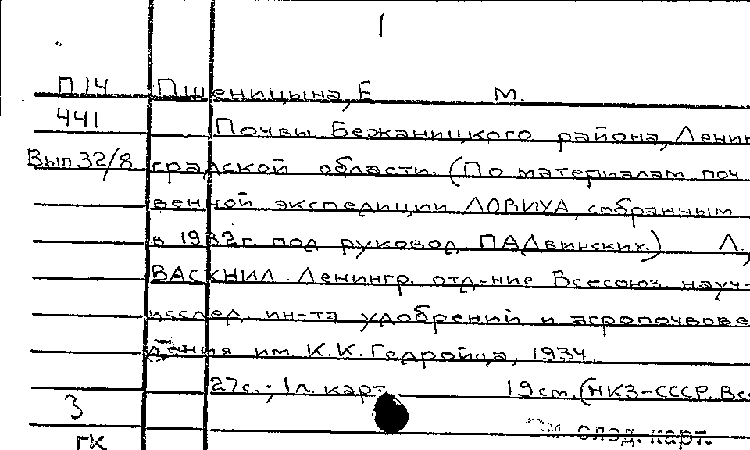 1
П 14 Пшеницына, Е М.
441 Почвы Бежаницкого района, Ленин
Вып 32/8 градской области. (По материалам поч
венной экспедиции ЛОВИУА, собранным
в 1932 г. под руковод. П.А. Двинских.) Л.,
ВАСХНИЛ. Ленингр. отд-ние Всесоюз. науч-
исслед. ин-та удобрений и агропочвове
дения им. К.К. Гедройца, 1934.
27 с.; 1 л. карт. 19 см. (НКЗ-СССР. Вс
3 См. след. карт.
ГК